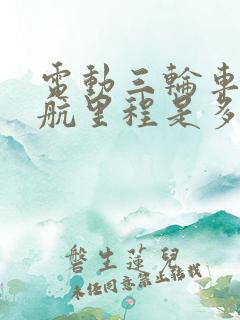 電動三輪車
航里程是多
磐生蓮兒
未經同意禁止轉載